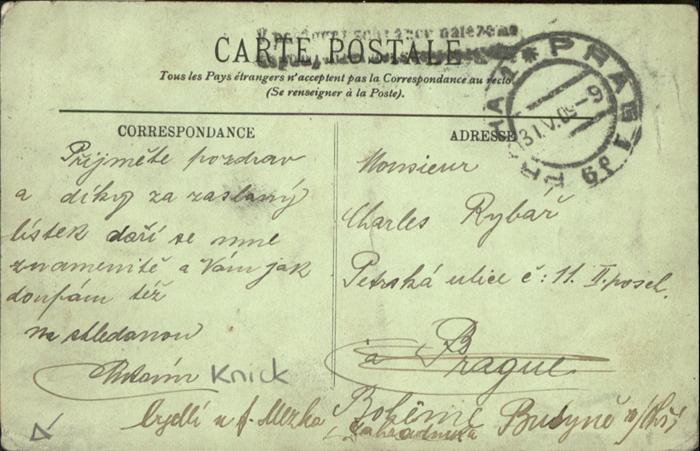 v poštovní schránce nalezeno
CARTE POSTALE
Tous les Pays étrangers n'acceptent pas la Correspondance au recto
(Se renseigner à la Poste).
PRAG 1
31.V.09-9
CORRESPONDANCE
Přijměte pozdrav
a díky za zaslaný
lístek daří se mně
znamenitě a Vám jak
doufám též
na shledanou
Knick
ADRESSE
Monsieur
Charles Rybář
Petrská ulice č: 11. II. posch.
à Prague
Bohême
bydlí u A. Mezka
zahradníka
Budyně n/Ohří